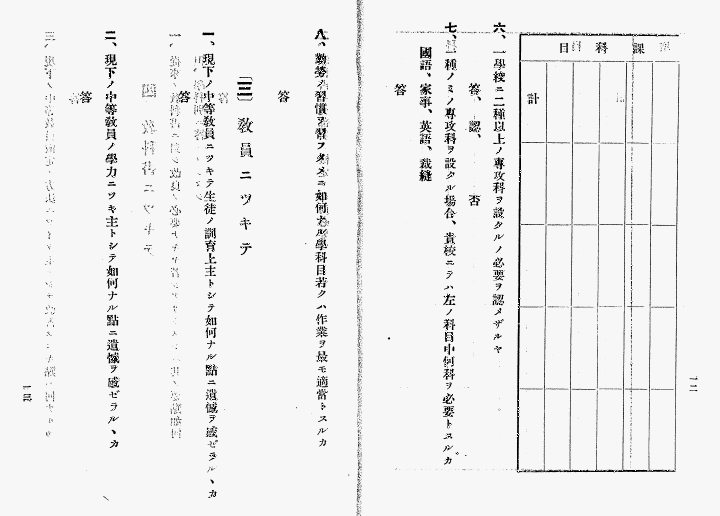 課科目
計
六、一學校ニ二種以上ノ專攻科ヲ設クルノ必要ヲ認メザルヤ
答、認、否
七、一種ノミノ專攻科ヲ設クル場合、貴校ニテハ左ノ科目中何科ヲ必要トスルカ
國語、家事、英語、裁縫
答
一二
八、勤勞ノ習慣ヲ習フタメニ如何ナル學科目若クハ作業ヲ最モ適當トスルカ
答
〔三〕敎員ニツキテ
一、現下ノ中等敎員ニツキテ生徒ノ訓育上主トシテ如何ナル點ニ遺憾ヲ感ゼラルヽカ
答
二、現下ノ中等敎員ノ學力ニツキ主トシテ如何ナル點ニ遺憾ヲ感ゼラルヽカ
答